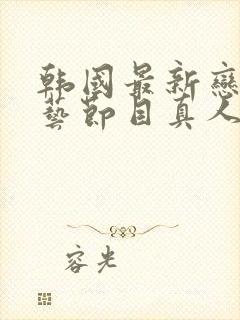 韩国最新戀
藝節目真人
容光